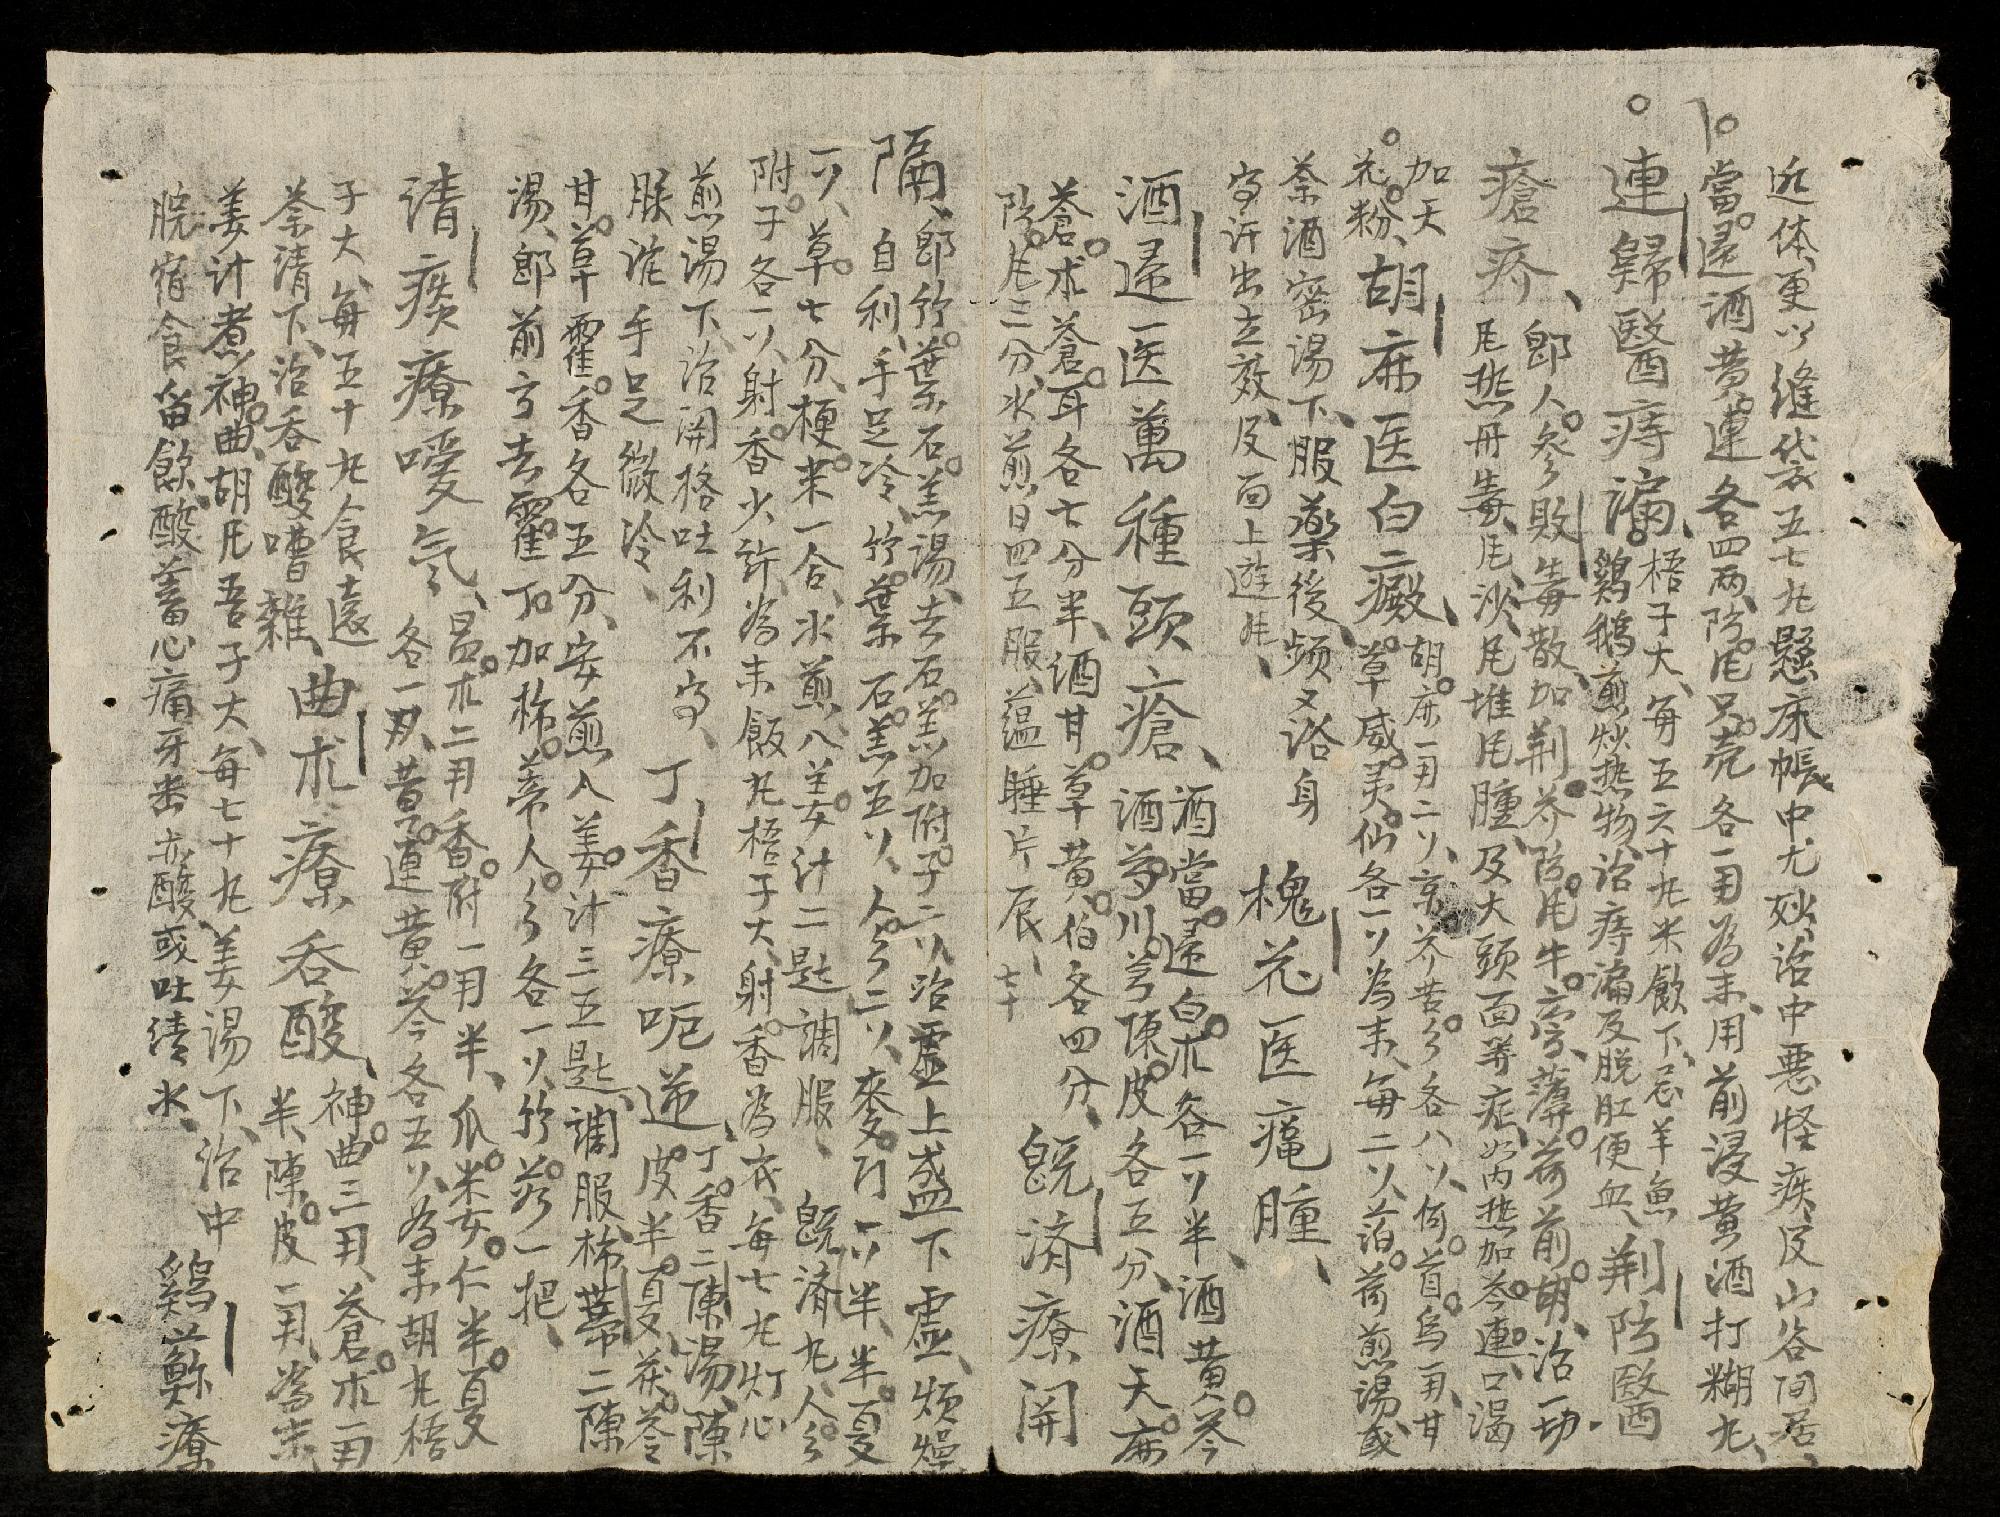 近体更以縫袋五七丸懸床帳中尤妙治中悪怪疾及山谷间居
當歸酒黄連各四两防風只壳各一用为末用前浸黄酒打糊丸
連歸醫痔漏梧子大每五六十丸米飲下忌羊魚
鷄鵝煎炒热物治痔漏及脱肛便血荆防醫
瘡疹即人參敗毒散加荆芥防風牛蒡薄荷前胡治一切
風热丹毒風沙風堆風腫及大頭面等症如内热加芩連口渴
加天花粉胡麻医白癜胡麻一用二㕥京芥苦參各八㕥何首烏一用甘
草威灵仙各一㕥为末每二㕥薄荷煎湯或
茶酒密湯下服藥後频又浴身槐花医瘟腫
出立效及面上遊風
酒歸医萬種頭瘡酒當歸白朮各一㕥半酒黄芩
酒芍川芎陳皮各五分酒天麻
蒼朮蒼耳各七分半酒甘草黄伯各四分
防風三分水煎日四五服蕴睡片辰既濟療関
隔即竹葉石羔湯去石羔加附子二㕥治虚上盛下虚烦燥
自利手足冷竹葉石羔五㕥人參二㕥麥門一㕥半半夏
一㕥草七分梗米一合水煎入姜汁二匙調服既濟丸人參
附子各一㕥射香少許为末飯丸梧子大射香为衣每七丸灯心
煎湯下治関格吐利不丁香療呃逆丁香二陳湯陳
脉沈手足微冷皮半夏茯苓
甘草霍香各五分安煎入姜汁三五匙調服柿蒂二陳
湯即前方去霍加柿蒂人參各一㕥竹茹一把
清痰療噯氣蒼朮二用香附一用半瓜米女仁半夏
各一用黄連黄芩各五㕥为末胡丸梧
子大每五十丸食遠曲朮療吞酸神曲三用蒼朮一用
茶清下治吞酸嘈雜半陳皮一用为末
姜汁煮神曲胡风吾子大每七十丸姜湯下治中
脘宿食畄飲酸蓄心痛牙齿亦酸或吐清水鷄蘇療